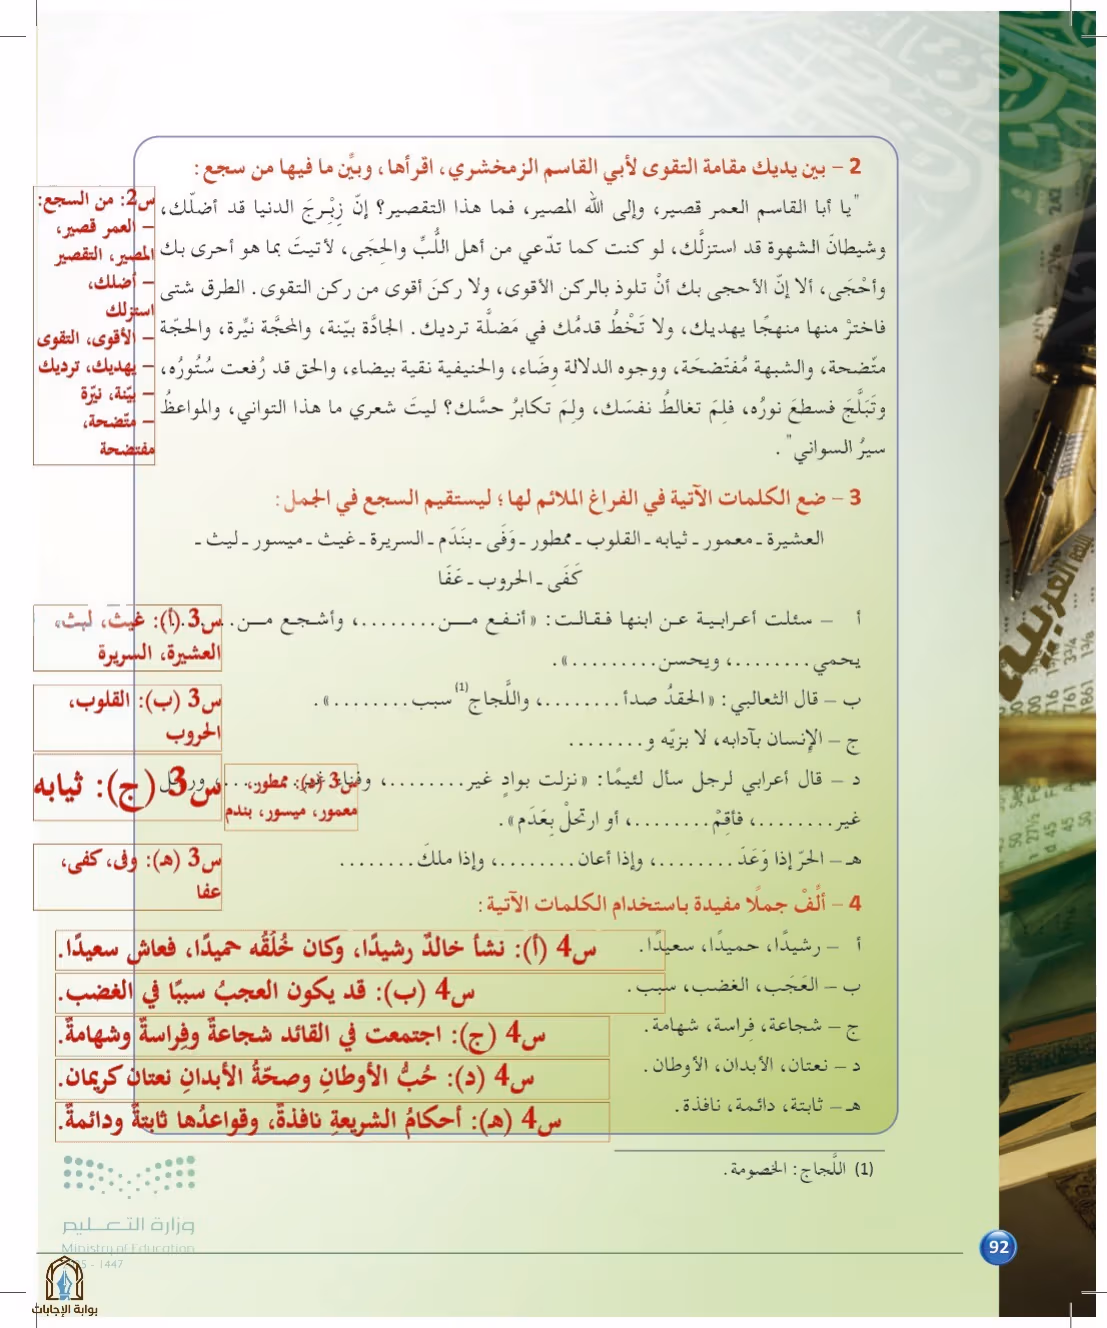 2 – بين يديك مقامة التقوى لأبي القاسم الزمخشري، اقرأها، وبيِّن ما فيها من سجع:
"يا أبا القاسم العمر قصير، وإلى الله المصير، فما هذا التقصير؟ إنّ زِبْرِجَ الدنيا قد أضلّك،
وشيطانَ الشهوة قد استزلَّك، لو كنت كما تدّعي من أهل اللُّبِّ والحِجَى، لأتيتَ بما هو أحرى بك
وأحْجَى، ألا إنّ الأحجى بك أنْ تلوذ بالركن الأقوى، ولا ركنَ أقوى من ركن التقوى. الطرق شتى
فاخترْ منها منهجًا يهديك، ولا تَخْطُ قدمُك في مَضلَّة ترديك. الجادَّة بيّنة، والمحجَّة نيِّرة، والحجّة
متّضحة، والشبهة مُفتَضحَة، ووجوه الدلالة وِضَاء، والحنيفية نقية بيضاء، والحق قد رُفعت سُتُورُه،
وتَبَلَّجَ فسطعَ نورُه، فلِمَ تغالطُ نفسَك، ولِمَ تكابرُ حسَّك؟ ليتَ شعري ما هذا التواني، والمواعظُ
سيرُ السواني".
س2: من السجع:
– العمر قصير،
المصير، التقصير
– أضلك،
استزلك
– الأقوى، التقوى
– يهديك، ترديك
– بيّنة، نيّرة
– متّضحة،
مفتضحة
3 – ضع الكلمات الآتية في الفراغ الملائم لها؛ ليستقيم السجع في الجمل:
العشيرة ـ معمور ـ ثيابه ـ القلوب ـ ممطور ـ وَفَى ـ بنَدَم ـ السريرة ـ غيث ـ ميسور ـ ليث ـ
كَفَى ـ الحروب ـ عَفَا
أ – سئلت أعرابية عن ابنها فقالت: «أنفع من........، وأشجع من........
يحمي........، ويحسن.........».
س3 (أ): غيث، ليث،
العشيرة، السريرة
ب – قال الثعالبي: «الحقدُ صدأ........، واللَّجاج(1) سبب........».
س3 (ب): القلوب،
الحروب
ج – الإنسان بآدابه، لا بزيّه و........
س3 (ج): ثيابه
د – قال أعرابي لرجل سأل لئيمًا: «نزلت بوادٍ غير........، وفناء غير........، ورجل
غير........، فأقِمْ........، أو ارتحلْ بِعَدَم».
س3 (د): ممطور،
معمور، ميسور، بندم
هـ – الحرّ إذا وَعَدَ........، وإذا أعان........، وإذا ملكَ........
س3 (هـ): وفى، كفى،
عفا
4 – ألِّفْ جملًا مفيدة باستخدام الكلمات الآتية:
أ – رشيدًا، حميدًا، سعيدًا.
س4 (أ): نشأ خالدٌ رشيدًا، وكان خُلُقُه حميدًا، فعاش سعيدًا.
ب – العَجَب، الغضب، سبب.
س4 (ب): قد يكون العجبُ سببًا في الغضب.
ج – شجاعة، فِراسة، شهامة.
س4 (ج): اجتمعت في القائد شجاعةٌ وفِراسةٌ وشهامةٌ.
د – نعتان، الأبدان، الأوطان.
س4 (د): حُبُّ الأوطانِ وصحّةُ الأبدانِ نعتان كريمان.
هـ – ثابتة، دائمة، نافذة.
س4 (هـ): أحكامُ الشريعةِ نافذةٌ، وقواعدُها ثابتةٌ ودائمةٌ.
(1) اللَّجاج: الخصومة.
وزارة التعليم
Ministry of Education
1447 -
92
بوابة الإجابات